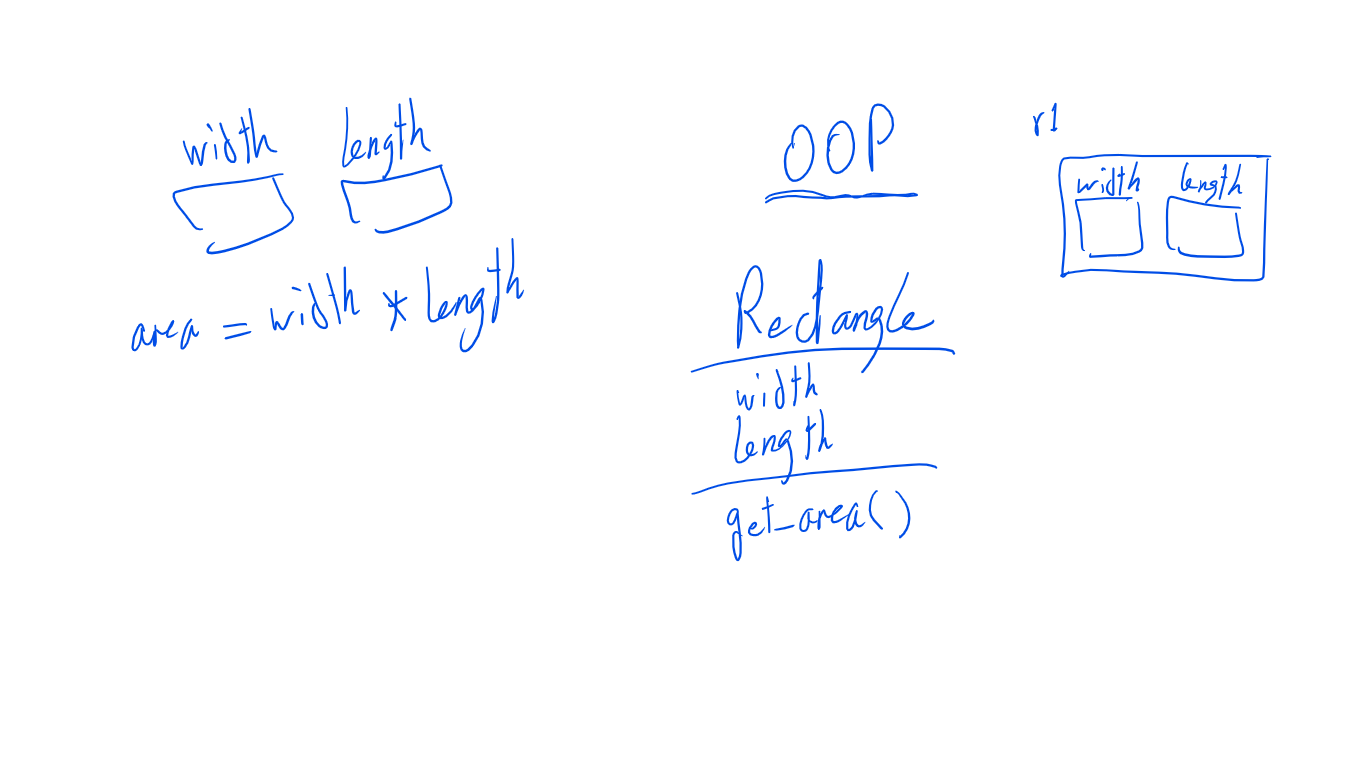 width length
area = width * length
OOP
Rectangle
width
length
get_area()
r1
width length